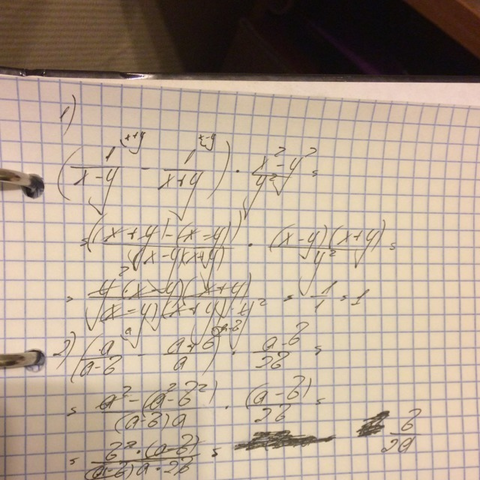 1)
(1/(x-y) ^(x+y) - 1/(x+y) ^(x-y)) · (x²-y²)/y² =
= ((x+y)-(x-y))/((x-y)(x+y)) · ((x-y)(x+y))/y² =
= (y²(x-y)(x+y))/((x-y)(x+y)y²) = 1/1 = 1
2) (a/(a-b) ^a - (a+b)/a ^(a-b)) · (a-b)/2b =
= (a²-(a²-b²))/((a-b)a) · (a-b)/2b =
= (b²·(a-b))/((a-b)a·2b) = b/2a